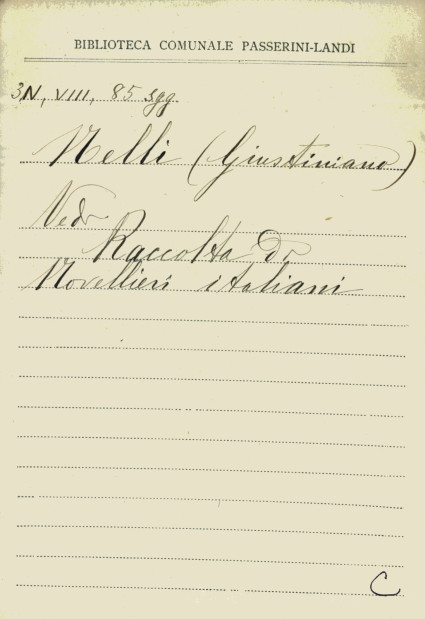 BIBLIOTECA COMUNALE PASSERINI-LANDI
3N, VIII, 85 sgg.
Nelli (Giustiniano)
Vedi
Raccolta di
Novellieri italiani
C